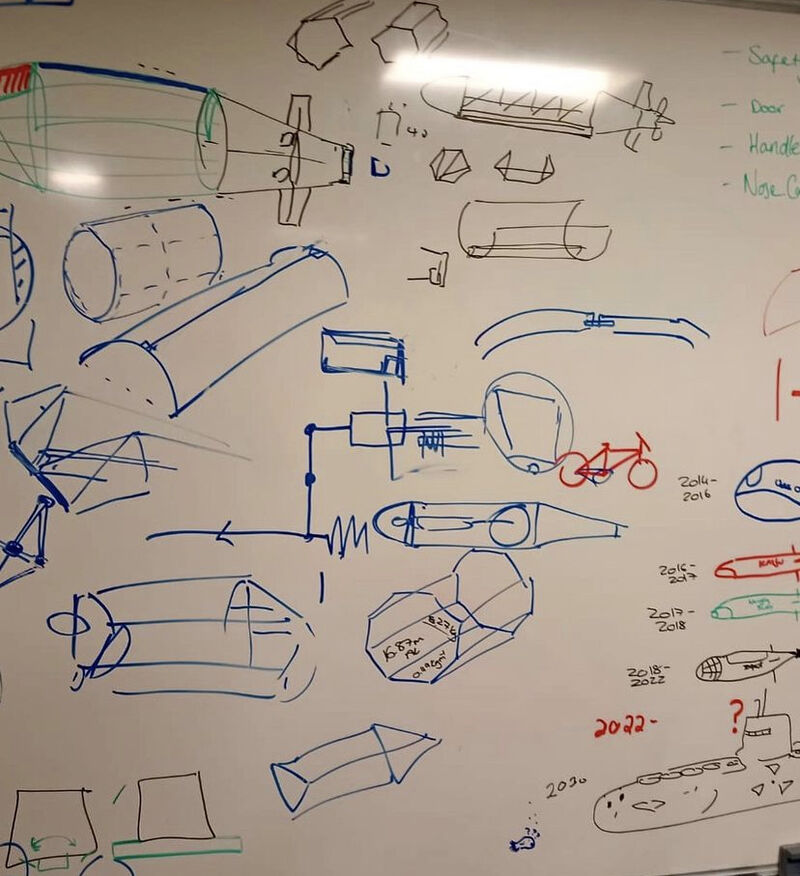 - Safety
- Door
- Handle
- Nose Co
40
2014-
2016
2016-
2017
2017-
2018
2018-
2022
2022- ?
2030
16.87m